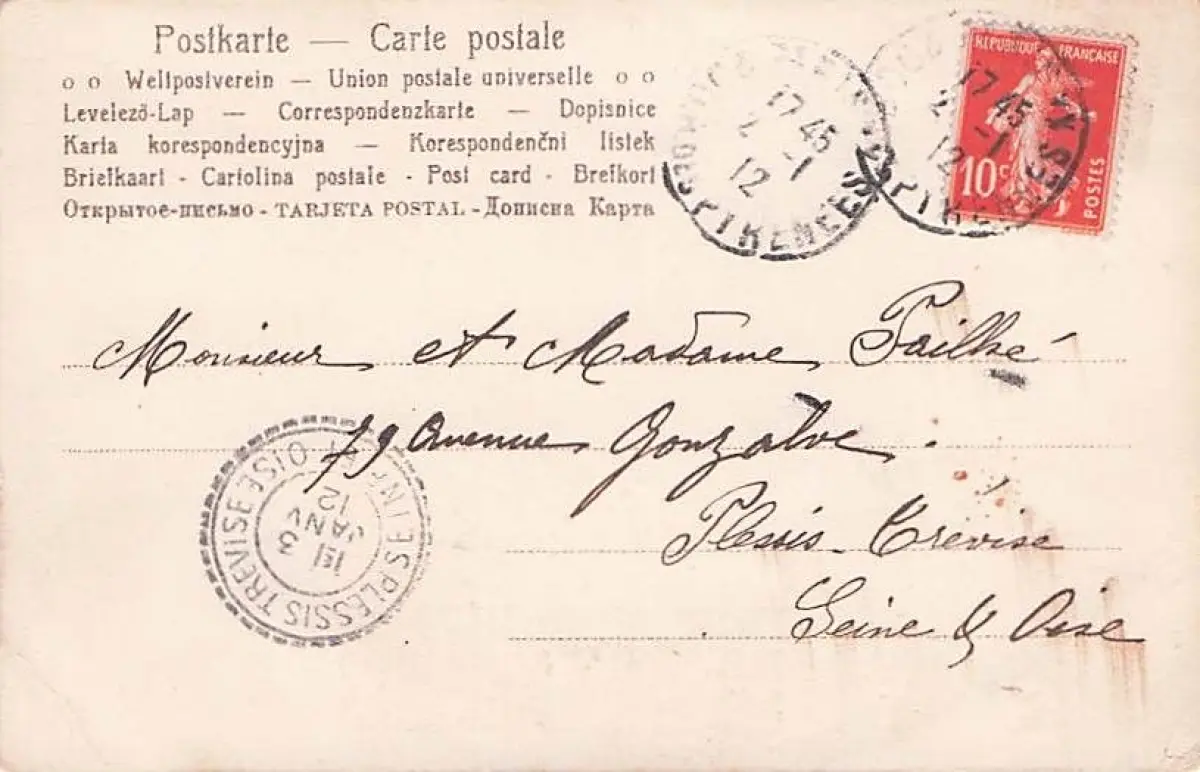 Postkarte — Carte postale
Weltpostverein — Union postale universelle
Levelező-Lap — Correspondenzkarte — Dopisnice
Karta korespondencyjna — Korespondenční listek
Briefkaart - Cartolina postale - Post card - Brefkort
Открытое-письмо - TARJETA POSTAL - Дописна Карта
17 45
2 -1
12
PYRENEES
REPUBLIQUE FRANÇAISE
10c
POSTES
17 45
2 -1
12
Monsieur et Madame
79 Avenue Gonzalve.
Plessis-Trévise
Seine & Oise
PLESSIS TREVISE SEINE-ET-OISE
3
JANV
12